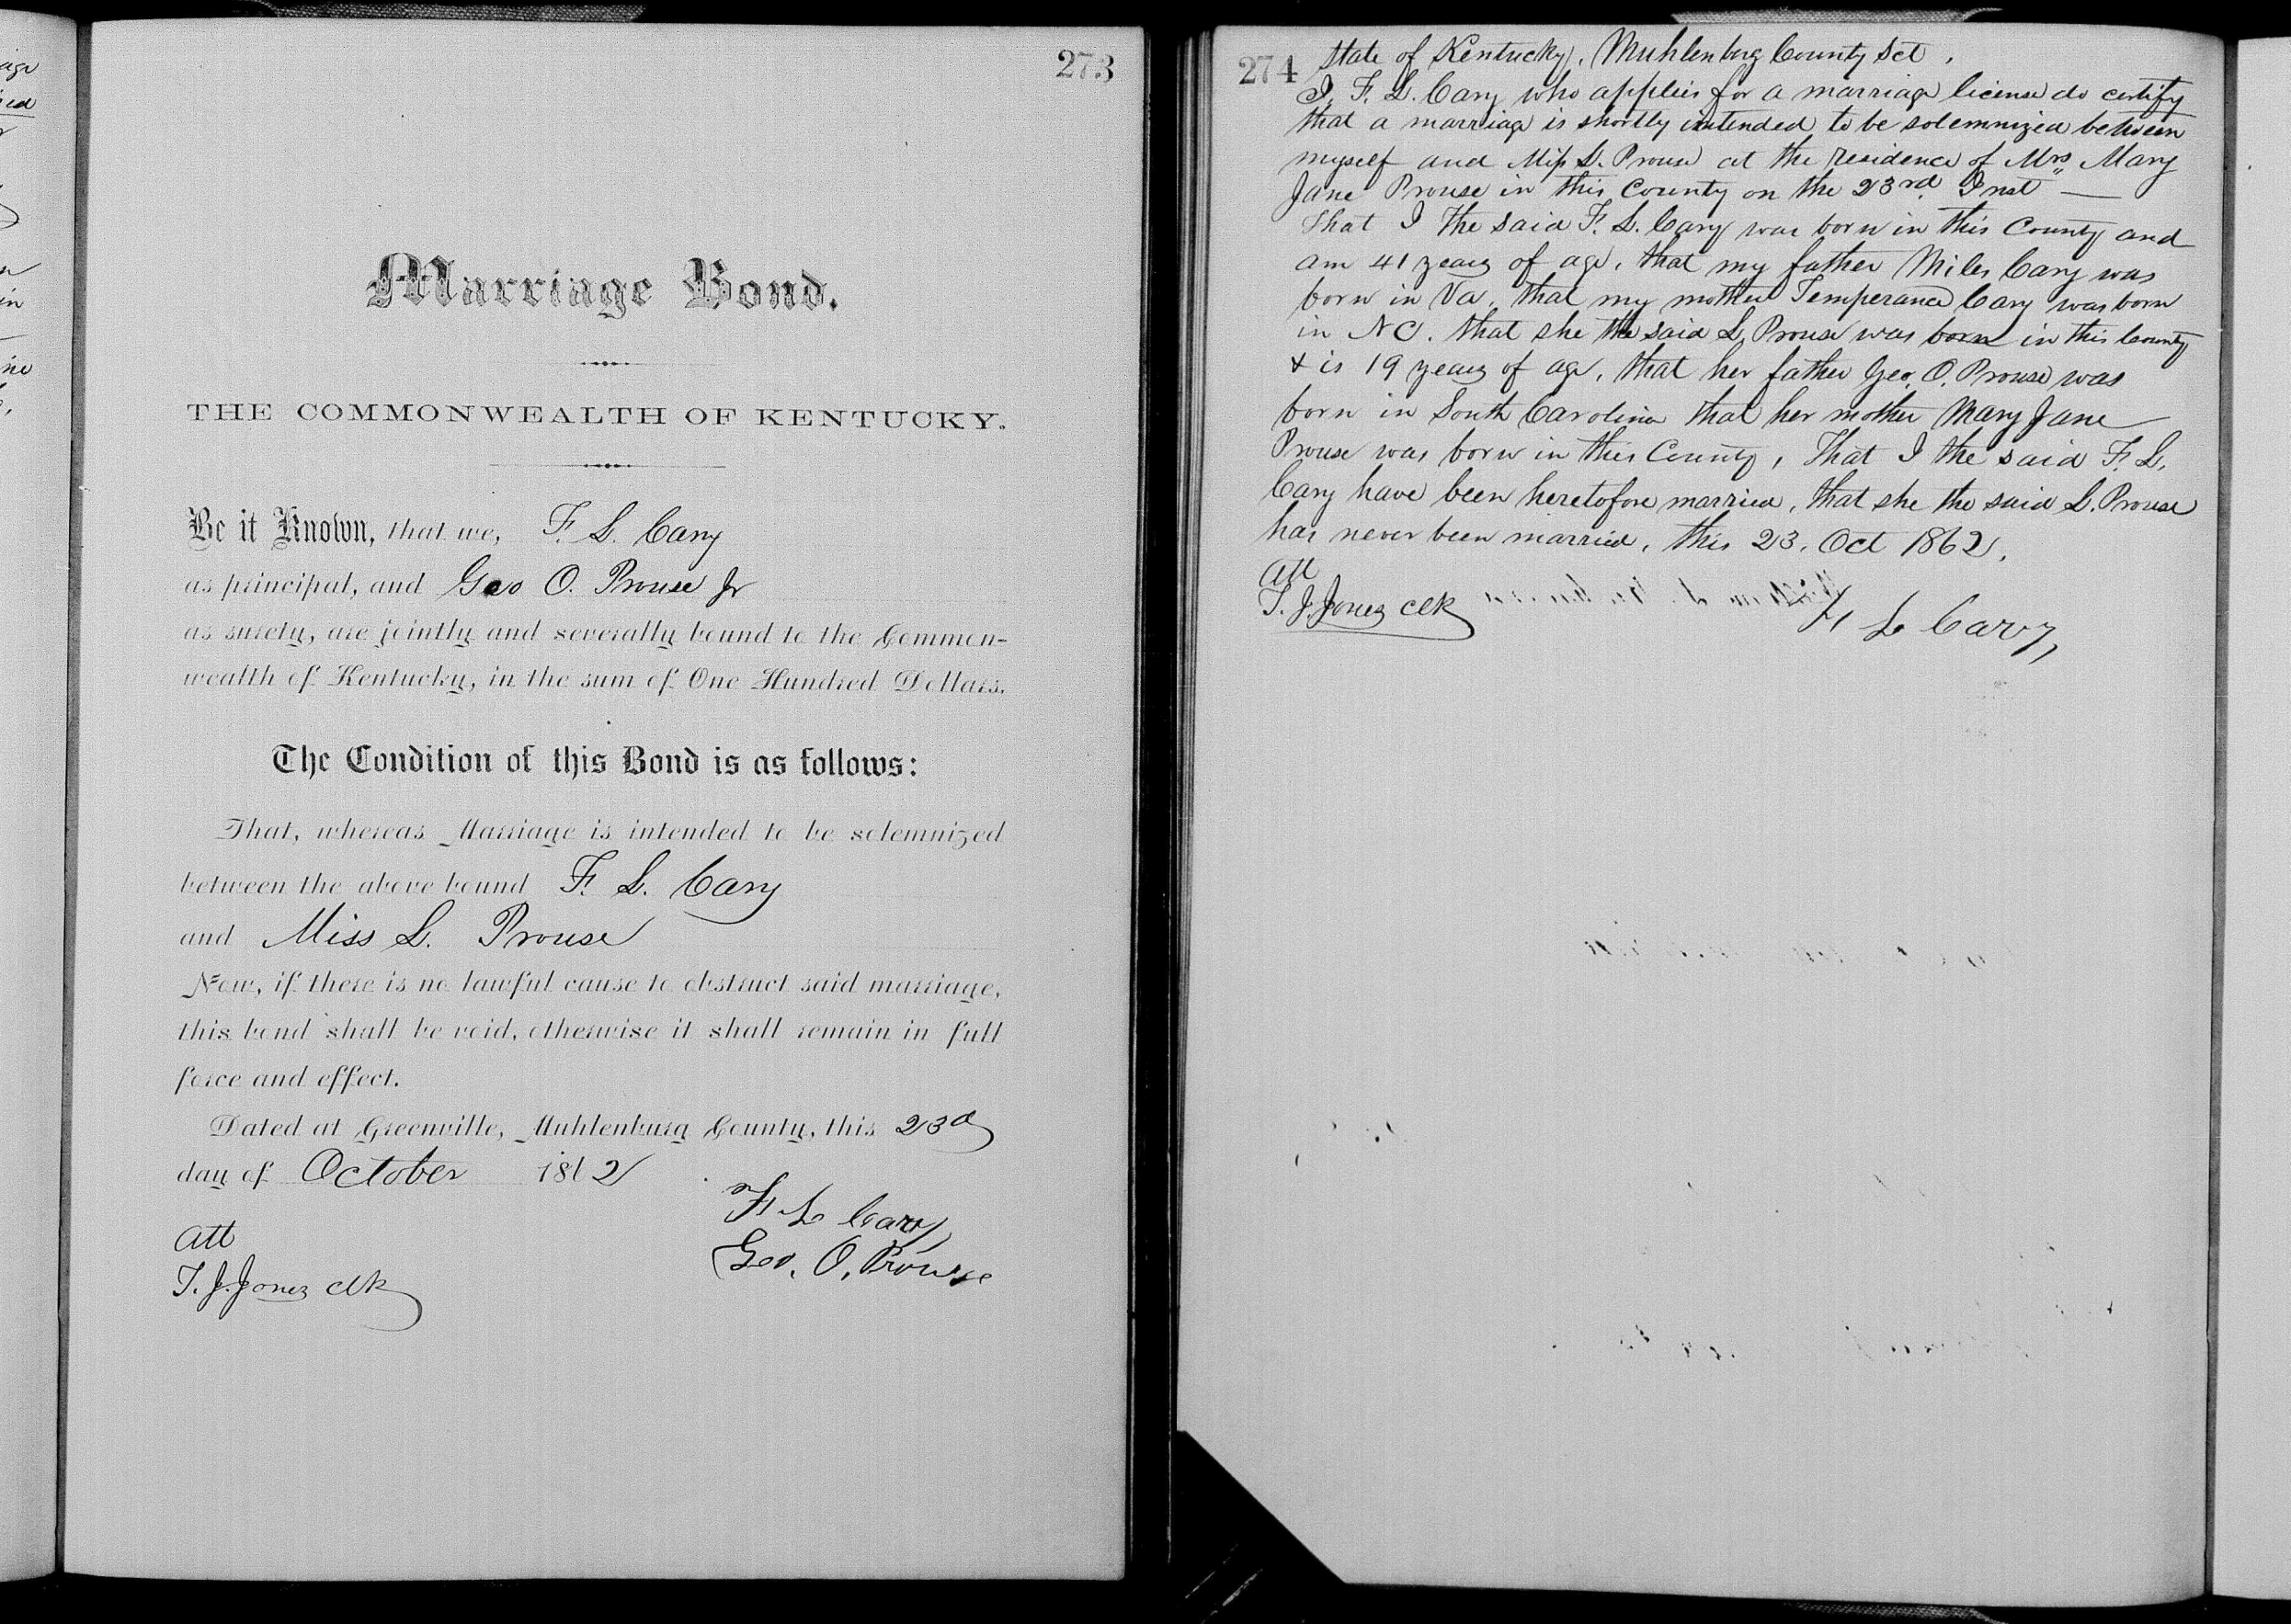 273
Marriage Bond.
THE COMMONWEALTH OF KENTUCKY.
Be it Known, that we, F. L. Cary
as principal, and Geo O. Prouse Jr
as surety, are jointly and severally bound to the Common-
wealth of Kentucky, in the sum of One Hundred Dollars.
The Condition of this Bond is as follows:
That, whereas Marriage is intended to be solemnized
between the above bound F. L. Cary
and Miss L. Prouse
Now, if there is no lawful cause to obstruct said marriage,
this bond shall be void, otherwise it shall remain in full
force and effect.
Dated at Greenville, Muhlenburg County, this 23d
day of October 1862
att
T. J. Jones clk
F L Cary
Geo. O. Prouse
274
State of Kentucky, Muhlenburg County Sct.
I, F. L. Cary who applies for a marriage license do certify
that a marriage is shortly intended to be solemnized between
myself and Miss L. Prouse at the residence of Mrs Mary
Jane Prouse in this County on the 23rd Inst"
That I the said F. L. Cary was born in this County and
am 41 years of age, that my father Miles Cary was
born in Va, that my mother Temperance Cary was born
in NC. that she the said L. Prouse was born in this County
& is 19 years of age, that her father Geo. O. Prouse was
born in South Carolina that her mother Mary Jane
Prouse was born in this County, That I the said F. L.
Cary have been heretofore married, that she the said L. Prouse
has never been married, this 23. Oct 1862,
att
T. J. Jones clk
F L Cary